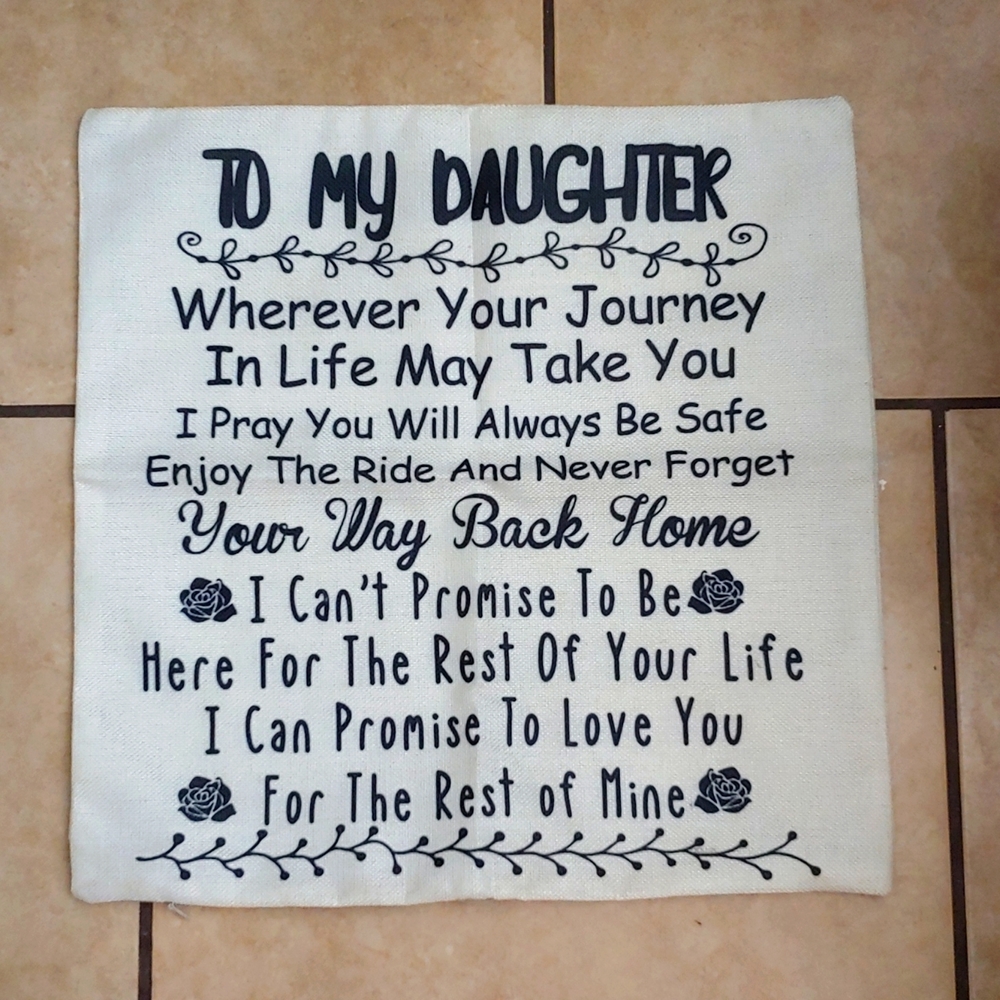 TO MY DAUGHTER
Wherever Your Journey
In Life May Take You
I Pray You Will Always Be Safe
Enjoy The Ride And Never Forget
Your Way Back Home
I Can't Promise To Be
Here For The Rest Of Your Life
I Can Promise To Love You
For The Rest of Mine